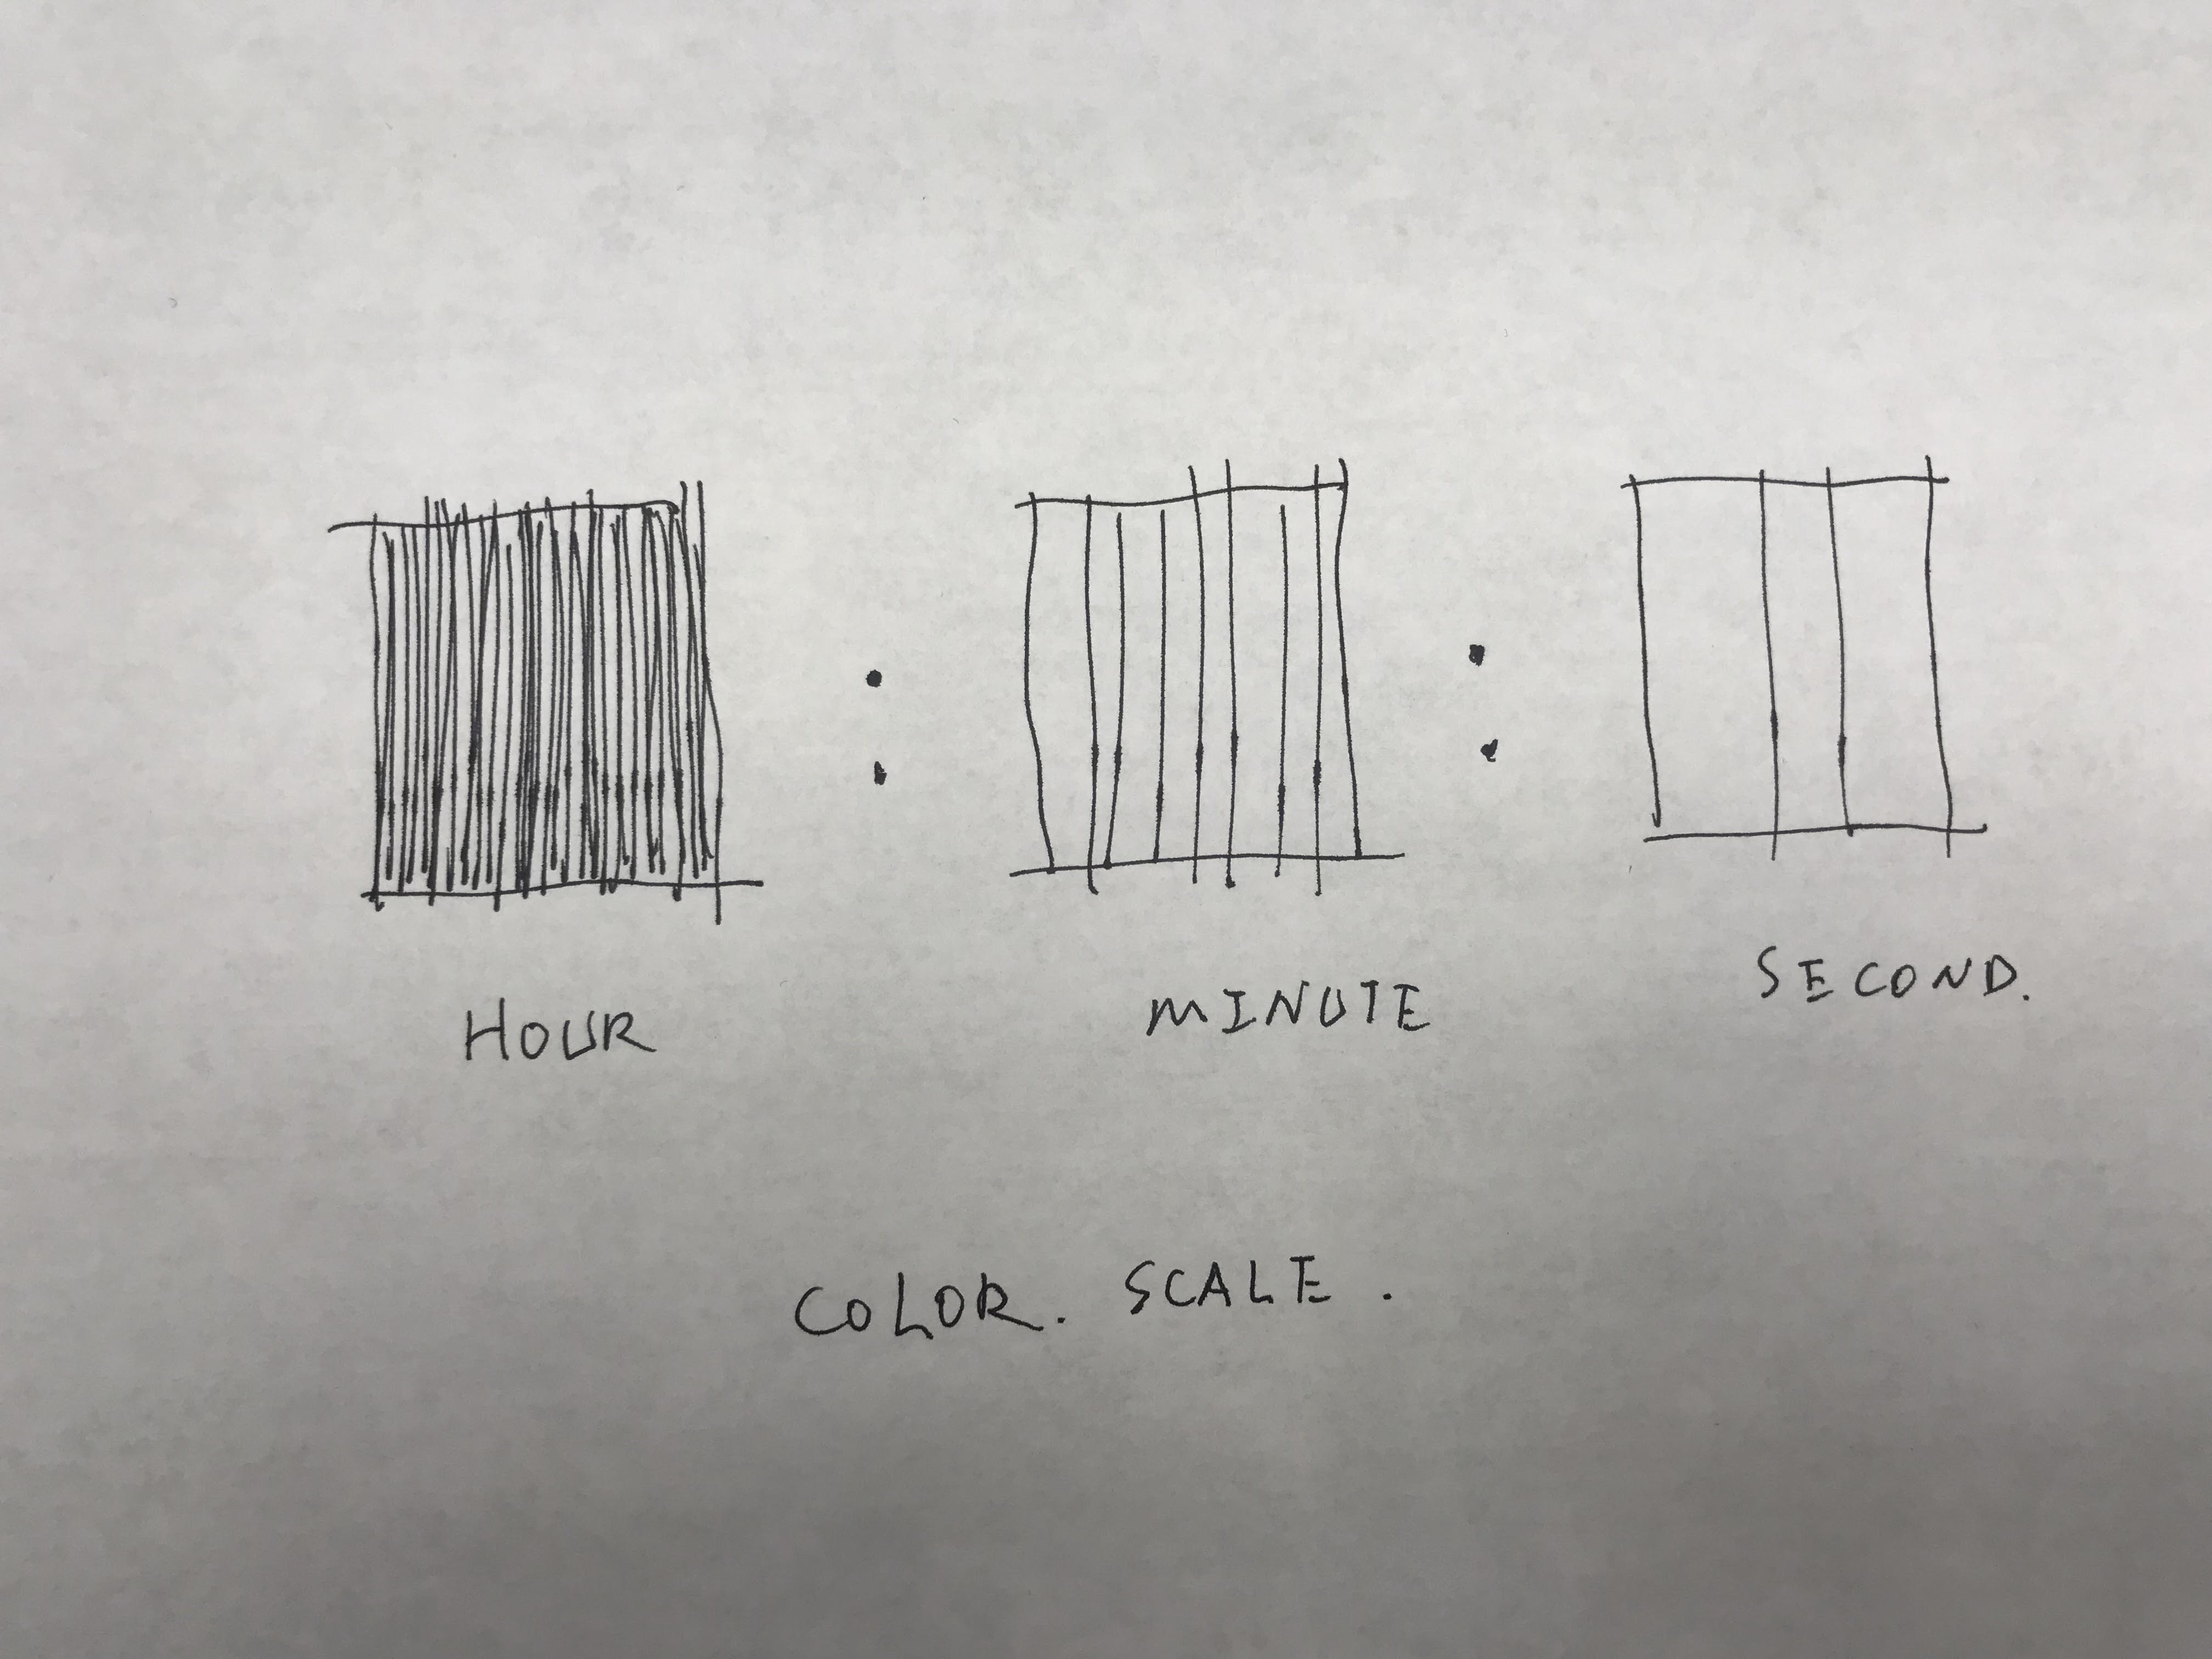 HOUR
MINUTE
SECOND.
COLOR. SCALE.